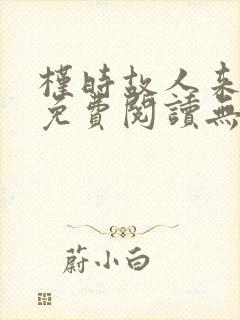 槿時故人來
免費閱讀無
蔚小白